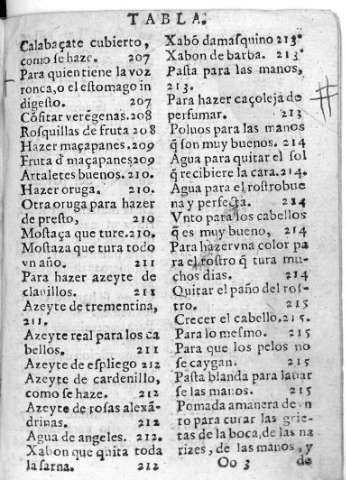 TABLA.
Calabaçate cubierto,
como se haze. 207
Para quien tiene la voz
ronca, o el estomago in
digesto. 207
Cõfitar verēgenas. 208
Rosquillas de fruta 208
Hazer maçapanes. 209
Fruta d̃ maçapanes 209
Artaletes buenos. 210.
Hazer oruga. 210.
Otra oruga para hazer
de presto, 210
Mostaça que ture. 210.
Mostaza que tura todo
vn año. 211
Para hazer azeyte de
clauillos. 211
Azeyte de trementina,
211.
Azeyte real para los ca
bellos. 211
Azeyte de espliego 212
Azeyte de cardenillo,
como se haze. 212
Azeyte de rosas alexã-
drinas. 212
Agua de angeles. 212.
Xabon que quita toda
la sarna. 212
Xabõ damasquino 213
Xabon de barba. 213
Pasta para las manos,
213.
Para hazer caçoleja de
perfumar. 213
Poluos para las manos
q̃ son muy buenos. 214
Agua para quitar el sol
q̃ recibiere la cara. 214.
Agua para el rostro bue
na y perfecta. 214
Vnto para los cabellos
q̃ es muy bueno, 214
Para hazer vna color pa
ra el rostro q̃ tura mu-
chos dias. 214
Quitar el paño del ros-
tro. 215
Crecer el cabello. 215.
Para lo mesmo. 215
Para que los pelos no
se caygan. 215
Pasta blanda para lauar
se las manos. 215
Pomada a manera de vn
to para curar las grie-
tas de la boca, de las na
rizes, de las manos, y
Oo 3 de